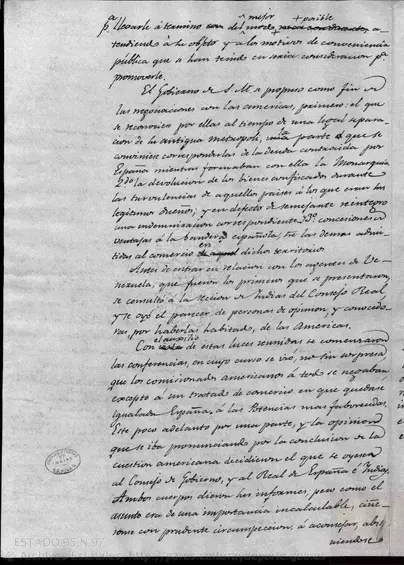 pª llevarle á termino del mejor modo posible a-
tendiendo á su objeto y á los motivos de conveniencia
pública que se han tenido en consideracion pª
promoverle.
El Gobierno de S. M. se propuso como fin de
las negociaciones con las americas, primero: el que
se reconozca por ellas al tiempo de una legal separa-
cion de la antigua metropoli, la parte que se
conviniese corresponderlas de la deuda contraida por
España mientras formaban con ella la Monarquia
2do la devolucion de los bienes confiscados durante
las turbulencias de aquellos paises á los que eran sus
legitimos dueños, y en defecto de semejante reintegro
una indemnizacion correspondiente: 3º concesiones
ventajas á la bandera española, de las demas admi-
tidas al comercio en dichos territorios.
Antes de entrar en relacion con los agentes de Ve-
nezuela, que fueron los primeros que se presentaron,
se consultó á la seccion de Indias del Consejo Real,
y se oyó el parecer de personas de opinion y conocedo-
ras, por haberlas habitado, de las Americas.
Con el auxilio de estas luces reunidas se comenzaron
las conferencias, en cuyo curso se vió, no sin sorpresa
que los comisionados americanos á todo se negaban
excepto á un tratado de comercio en que quedase
igualada España, á las Potencias mas favorecidas.
Este poco adelanto por una parte, y la opinion
que se iba pronunciando por la conclusion de la
cuestion americana decidieron el que se oyera
al Consejo de Gobierno, y al Real de España é Indias
Ambos cuerpos dieron sus informes, pero como el
asunto era de una importancia incalculable, ciñe-
ronse con prudente circunspeccion, á aconsejar, abs-
niendose
ESTADO 95 N.97